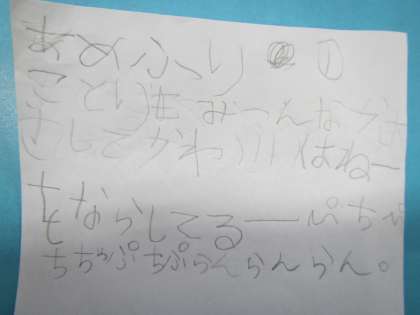 あめふり ①
ことりも みーんな かさ
さしてかわいい はねー
をならしてる──ぴちぴ
ちちゃぷちぷらんらんらん。